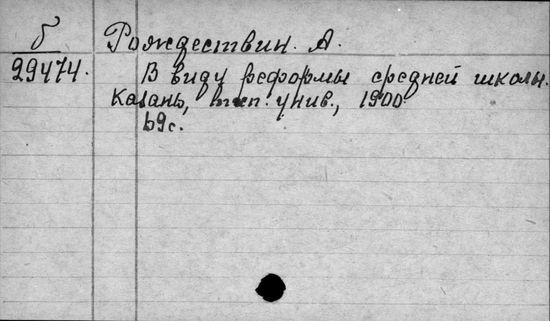 б Рождествин. А.
29474. В виду реформы средней школы.
Казань, тип. унив., 1900
69с.